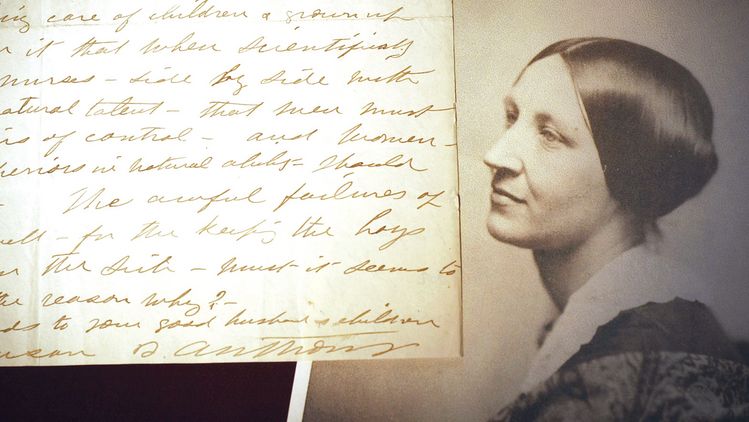 ing care of children & grown up
it that when scientifically
nurses — side by side with
natural talent — that men must
of control — and women —
in natural ability — should
The awful failures of
— for the keep'g the boys
the sick — must it seems to
the reason why? —
to your good husband & children
Susan B. Anthony